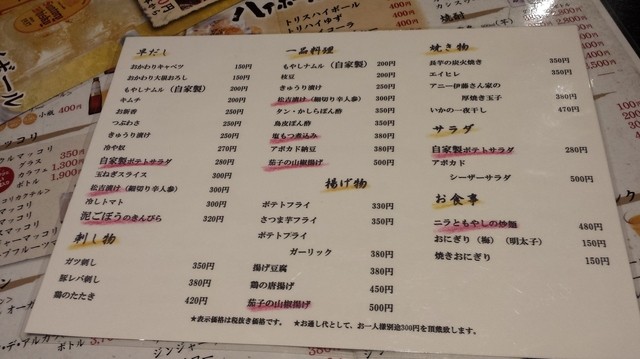 早だし
おかわりキャベツ 150円
おかわり大根おろし 150円
もやしナムル（自家製） 200円
キムチ 200円
お新香 250円
つぶわさ 250円
きゅうり漬け 250円
冷や奴 270円
自家製ポテトサラダ 280円
玉ねぎスライス 300円
松吉漬け（細切り辛人参） 300円
冷しトマト 300円
泥ごぼうのきんぴら 320円
刺し物
ガツ刺し 350円
豚レバ刺し 380円
鶏のたたき 420円
一品料理
もやしナムル（自家製） 200円
枝豆 200円
きゅうり漬け 250円
松吉漬け（細切り辛人参） 300円
タン・かしらぽん酢 350円
鳥皮ぽん酢 350円
塩もつ煮込み 380円
アボカド納豆 380円
茄子の山椒揚げ 500円
揚げ物
ポテトフライ 330円
さつま芋フライ 350円
ポテトフライ
ガーリック 380円
揚げ豆腐 380円
鶏の唐揚げ 450円
茄子の山椒揚げ 500円
焼き物
長芋の炭火焼き 350円
エイヒレ 350円
アニー伊藤さん家の
厚焼き玉子 380円
いかの一夜干し 470円
サラダ
自家製ポテトサラダ 280円
アボカド
シーザーサラダ 500円
お食事
ニラともやしの炒麺 480円
おにぎり（梅）（明太子） 150円
焼きおにぎり 150円
★表示価格は税抜き価格です。 ★お通し代として、お一人様別途300円を頂戴致します。
トリスハイボール 400円
トリハイゆず